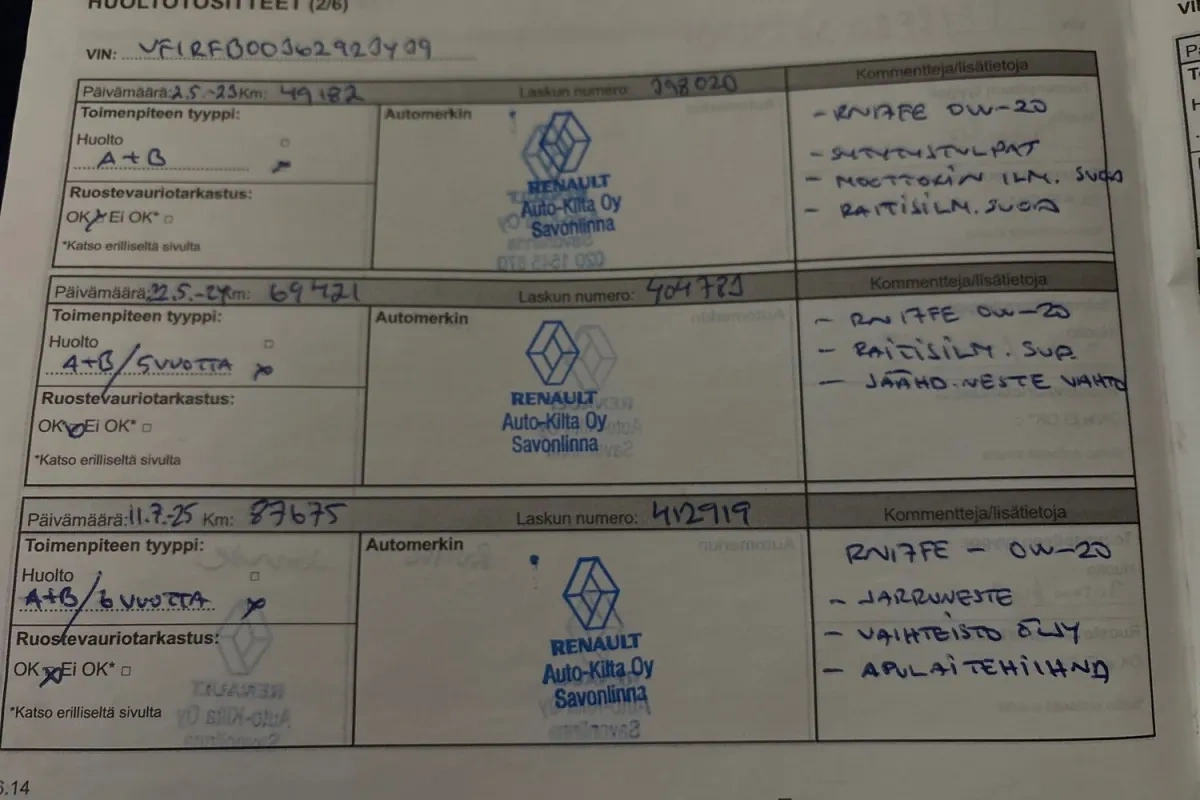 HUOLTOTOSITTEET (2/6)
VIN:
Päivämäärä: 2.5.-23 Km: 49182 Laskun numero: 398020 Kommentteja/lisätietoja
Toimenpiteen tyyppi: Automerkin
Huolto
A+B
Ruostevauriotarkastus:
OK Ei OK*
*Katso erilliseltä sivulta
RENAULT
Auto-Kilta Oy
Savonlinna
- RN17FE 0W-20
- SYTYTYSTULPAT
- MOOTTORIN ILM. SUOD
- RAITISILM. SUOD
Päivämäärä: 22.5.-24 Km: 69421 Laskun numero: 404783 Kommentteja/lisätietoja
Toimenpiteen tyyppi: Automerkin
Huolto
A+B/5 VUOTTA
Ruostevauriotarkastus:
OK Ei OK*
*Katso erilliseltä sivulta
RENAULT
Auto-Kilta Oy
Savonlinna
- RN17FE 0W-20
- RAITISILM. SUO
- JÄÄHD. NESTE VAIHTO
Päivämäärä: 11.7.-25 Km: 87675 Laskun numero: 412919 Kommentteja/lisätietoja
Toimenpiteen tyyppi: Automerkin
Huolto
A+B/6 VUOTTA
Ruostevauriotarkastus:
OK Ei OK*
*Katso erilliseltä sivulta
RENAULT
Auto-Kilta Oy
Savonlinna
RN17FE - 0W-20
- JARRUNESTE
- VAIHTEISTO ÖLJY
- APULAITEHIHNA
6.14